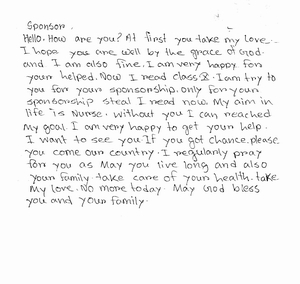 Sponsor.
Hello. How are you? At first you take my love.
I hope you are well by the grace of God.
and I am also fine. I am very happy for
your helped. Now I read class X. I am try to
you for your sponsorship. only for your
sponsorship steal I read now. My aim in
life is Nurse. without you I can reached
my goal. I am very happy to get your help.
I want to see you If you got chance, please
you come our country. I regularly pray
for you as May you live long and also
your family. take care of your health. take
my love. No more today. May God bless
you and your family.